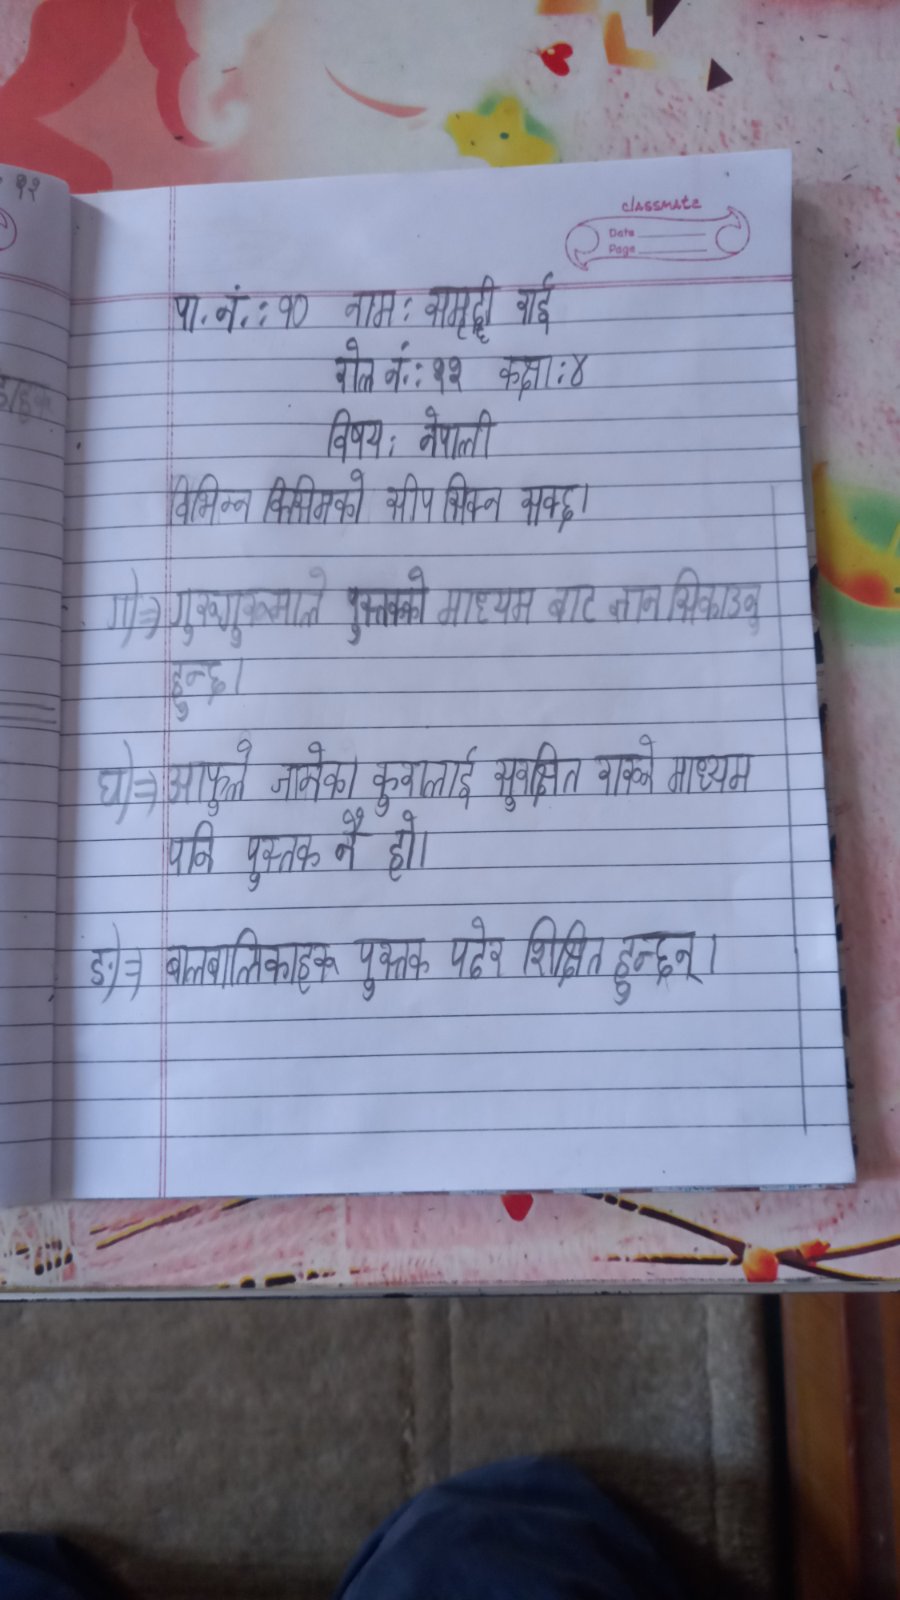 १२
classmate
Date
Page
पा. नं.: १० नाम: समृद्दी राई
रोल नं.: १२ कक्षा: ४
विषय: नेपाली
विभिन्न किसिमको सीप सिक्न सक्छ।
ग)⇒ गुरुगुरुमाले पुस्तकको माध्यम बाट ज्ञान सिकाउनु
हुन्छ।
घ)⇒ आफुले जानेका कुरालाई सुरक्षित राख्ने माध्यम
पनि पुस्तक नै हो।
ङ)⇒ बालबालिकाहरू पुस्तक पढेर शिक्षित हुन्छन्।